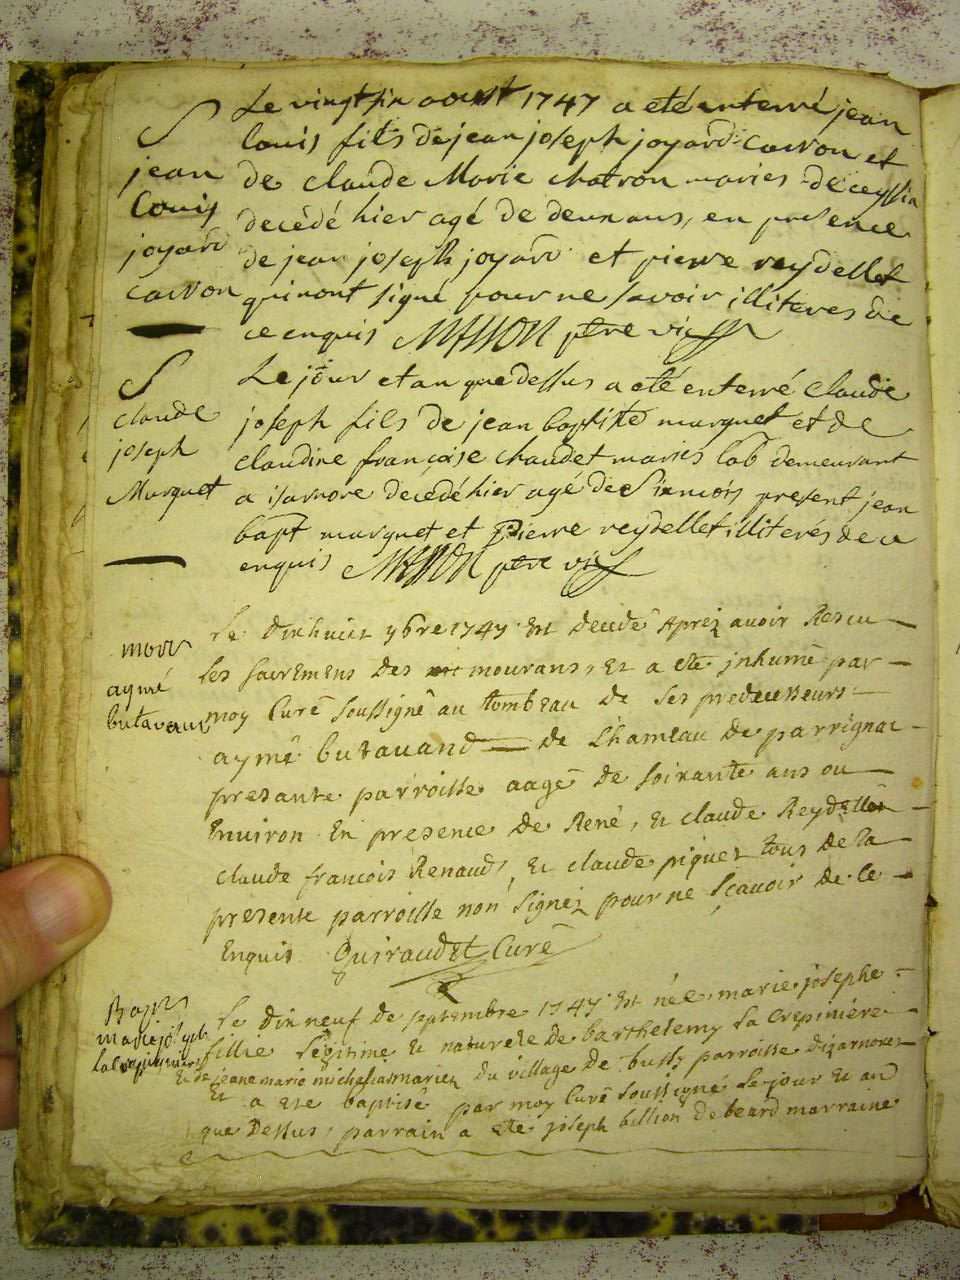 S
jean
Louis
joyard
carron
Le vingt six aoust 1747 a eté enterré jean
louis fils de jean joseph joyard carron et
de claude Marie chatron maries de ceyssia
decédé hier agé de deux ans, en presence
de jean joseph joyard et pierre reydellet
qui nont signé pour ne savoir illiteres de
ce enquis MASSON ptre vic
S
claude
joseph
Murquet
Le jour et an que dessus a eté enterré claude
joseph fils de jean baptiste murquet et de
claudine françoise chaudet mariés lab demeurant
a isarnore decedé hier agé de six mois present jean
bapt murquet et Pierre reydellet illiterés de ce
enquis MASSON ptre vic
mort
aymé
butavand
le dix huict 7bre 1747 Est decedé Aprez avoir Rescu
les sacremens des mourans, Et a eté inhumé par
moy Curé soussigné au tombeau de ses predecesseurs
aymé butavand de L'hameau de parrignac
presante parroisse aagé de soixante ans ou
Environ En presence de René, Et claude Reydellet
claude francois Renaud, Et claude piquet tous de la
presente parroisse non signez pour ne sçavoir de ce
Enquis Guiraudet Curé
Bapt
marie josephe
la crepiniere
le dix neuf de septembre 1747 Est née marie josephe
fillie legitime Et naturele de barthelemy la Crepiniére
Et de jeane marie mariez du village de bussy parroisse dizarnores
Et a ete baptisé par moy Curé soussigné le jour Et an
que Dessus, parrain a ete joseph billion de beard marraine